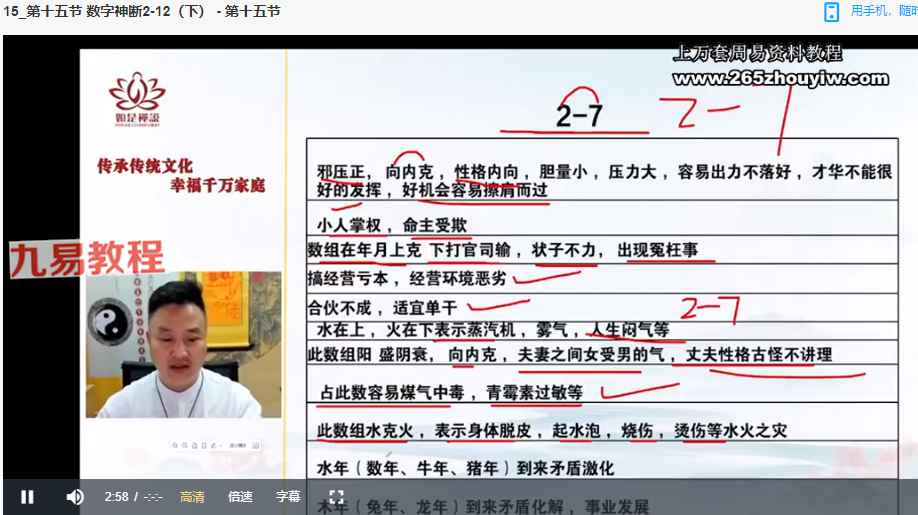 15_第十五节 数字神断2-12（下） - 第十五节
用手机，随时
上万套周易资料教程
www.265zhouyiw.com
如是禅说
传承传统文化
幸福千万家庭
九易教程
2-7
2-7
邪压正，向内克，性格内向，胆量小，压力大，容易出力不落好，才华不能很
好的发挥，好机会容易擦肩而过
小人掌权，命主受欺
数组在年月上克 下打官司输，状子不力，出现冤枉事
搞经营亏本，经营环境恶劣
合伙不成，适宜单干
2-7
水在上，火在下表示蒸汽机，雾气，人生闷气等
此数组阳 盛阴衰，向内克，夫妻之间女受男的气，丈夫性格古怪不讲理
占此数容易煤气中毒，青霉素过敏等
此数组水克火，表示身体脱皮，起水泡，烧伤，烫伤等水火之灾
水年（数年、牛年、猪年）到来矛盾激化
木年（兔年、龙年）到来矛盾化解，事业发展
2:58 / -:-:-
高清
倍速
字幕